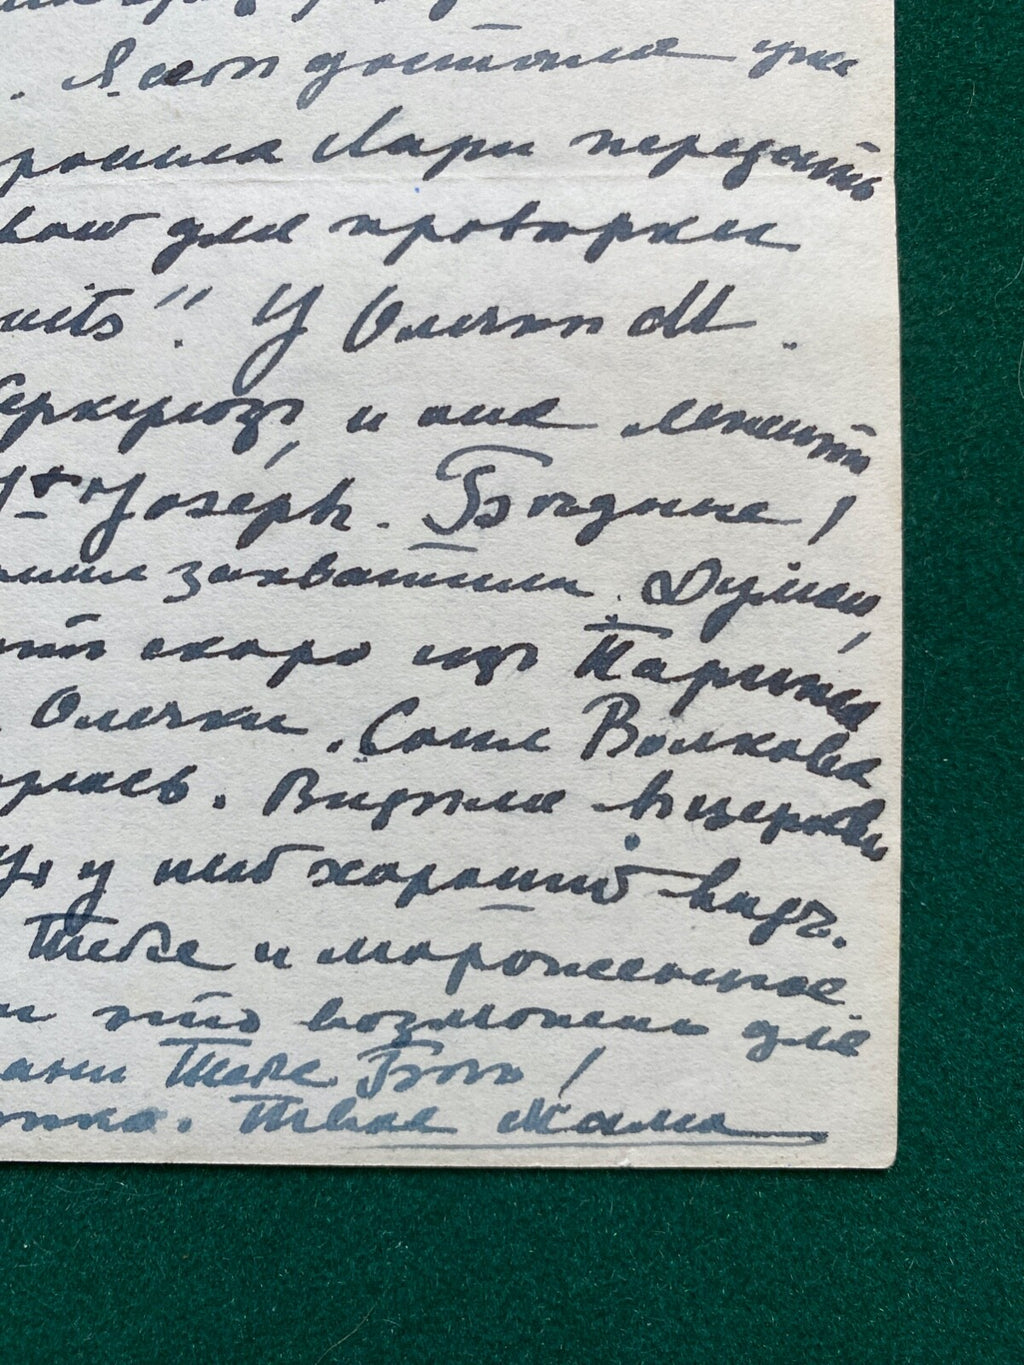 . Я сот достала уже
росила Лари передать
вот для проверки
uits". У Олечки М.
беркулезъ, и она лежитъ
St Joseph. Бѣдные!
захватили. Думаю,
скоро изъ Парижа
Олечки. Соня Волкова
рлась. Видѣла въ церкви
у неё хороший видъ.
Тебе и мороженное
это возможно для
ани Тебе Богъ!
Твоя Мама